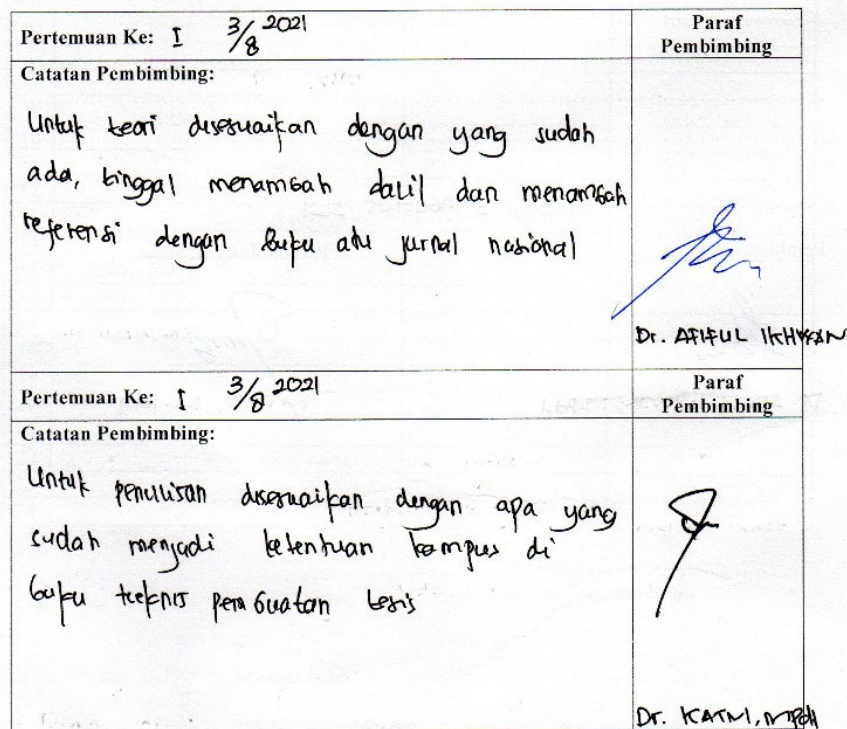 Pertemuan Ke: I 3/8 2021
Paraf
Pembimbing
Catatan Pembimbing:
Untuk teori disesuaikan dengan yang sudah
ada, tinggal menambah dalil dan menambah
referensi dengan buku atu jurnal nasional
Dr. AFIFUL IKHWAN
Pertemuan Ke: I 3/8 2021
Paraf
Pembimbing
Catatan Pembimbing:
Untuk penulisan disesuaikan dengan apa yang
sudah menjadi ketentuan kampus di
buku teknis pembuatan tesis
Dr. KATNI, MPdI